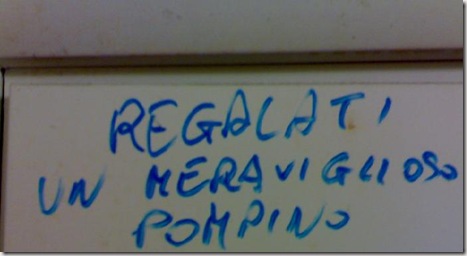 REGALATI
UN MERAVIGLIOSO
POMPINO